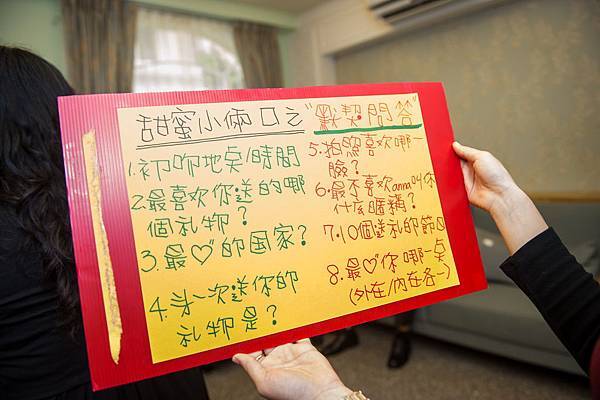 甜蜜小倆口之"默契問答"
1.初吻地桌/時間
2.最喜欢你送的哪
個礼物?
3.最♡的国家?
4.头一次送你的
礼物是?
5.拍照喜欢哪一
臉?
6.最不喜欢anna叫你
什麼暱稱?
7.10個送礼的節日
8.最♡你哪一桌
(外在/內在各一)